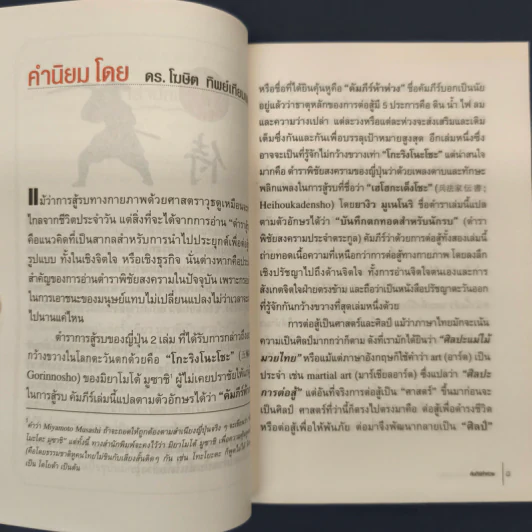 คำนิยม โดย ดร. โฆษิต ทิพย์เทียม
แม้ว่าการสู้รบทางกายภาพด้วยศาสตราวุธดูเหมือนจะ
ไกลจากชีวิตประจำวัน แต่สิ่งที่จะได้จากการอ่าน
คือแนวคิดที่เป็นสากลสำหรับการนำไปประยุกต์เพื่อต่อสู้
รูปแบบ ทั้งในเชิงจิตใจ หรือเชิงธุรกิจ นั่นต่างหากคือ
สำคัญของการอ่านตำราพิชัยสงครามในปัจจุบัน เพราะ
ในการเอาชนะของมนุษย์แทบไม่เปลี่ยนแปลงไม่ว่าเวลาจะ
ไปนานแค่ไหน
ตำราการสู้รบของญี่ปุ่น 2 เล่ม ที่ได้รับการกล่าวถึง
กว้างขวางในโลกตะวันตกด้วยคือ “โกะริงโนะโชะ”
Gorinnosho) ของมิยาโมโต้ มูซาชิ¹ ผู้ไม่เคยปราชัยให้
ในการสู้รบ คัมภีร์เล่มนี้แปลตามตัวอักษรได้ว่า “คัมภีร์ห้า
¹ คำว่า Miyamoto Musashi ถ้าจะถอดให้ถูกต้องตามสำเนียงญี่ปุ่นจริง ๆ
โมะโตะ มุซาชิ” แต่ทั้งนี้ ทางสำนักพิมพ์จะคงไว้ว่า มิยาโมโต้ มูซาชิ
เป็น โตโยต้า เป็นต้น
หรือชื่อที่ได้ยินคุ้นหูคือ “คัมภีร์ห้าห่วง” ชื่อคัมภีร์บอกเป็นนัย
อยู่แล้วว่าธาตุหลักของการต่อสู้มี 5 ประการคือ ดิน น้ำ ไฟ ลม
และความว่างเปล่า แต่ละวงหรือแต่ละห่วงจะส่งเสริมและเติม
เต็มซึ่งกันและกันเพื่อบรรลุเป้าหมายสูงสุด อีกเล่มหนึ่งซึ่ง
อาจจะเป็นที่รู้จักไม่กว้างขวางเท่า “โกะริงโนะโชะ” แต่น่าสนใจ
มากคือ ตำราพิชัยสงครามของญี่ปุ่นว่าด้วยเพลงดาบและทักษะ
พลิกแพลงในการสู้รบที่ชื่อว่า “เฮโฮกะเด็งโชะ” (兵法家伝書;
Heihoukadensho) โดยยางิว มุเนโนริ ชื่อตำราเล่มนี้แปล
ตามตัวอักษรได้ว่า “บันทึกตกทอดสำหรับนักรบ” (ตำรา
พิชัยสงครามประจำตระกูล) คัมภีร์ว่าด้วยการต่อสู้ทั้งสองเล่มนี้
ถ่ายทอดเนื้อความที่เหนือกว่าการต่อสู้ทางกายภาพ โดยลงลึก
เชิงปรัชญาไปถึงด้านจิตใจ ทั้งการอ่านจิตใจตนเองและการ
สังเกตจิตใจฝ่ายตรงข้าม และถือว่าเป็นหนังสือปรัชญาตะวันออก
ที่รู้จักกันกว้างขวางที่สุดเล่มหนึ่งด้วย
การต่อสู้เป็นศาสตร์และศิลป์ แม้ว่าภาษาไทยมักจะเน้น
ความเป็นศิลป์มากกว่าก็ตาม ดังที่เรามักได้ยินว่า “ศิลปะแม่ไม้
มวยไทย” หรือแม้แต่ภาษาอังกฤษก็ใช้คำว่า art (อาร์ต) เป็น
ประจำ เช่น martial art (มาร์เชียลอาร์ต) ซึ่งแปลว่า “ศิลปะ
การต่อสู้” แต่อันที่จริงการต่อสู้เป็น “ศาสตร์” ขึ้นมาก่อนจะ
เป็นศิลป์ ศาสตร์ที่ว่านี้ก็ตรงไปตรงมาคือ ต่อสู้เพื่อดำรงชีวิต
หรือต่อสู้เพื่อให้พ้นภัย ต่อมาจึงพัฒนากลายเป็น “ศิลป์”